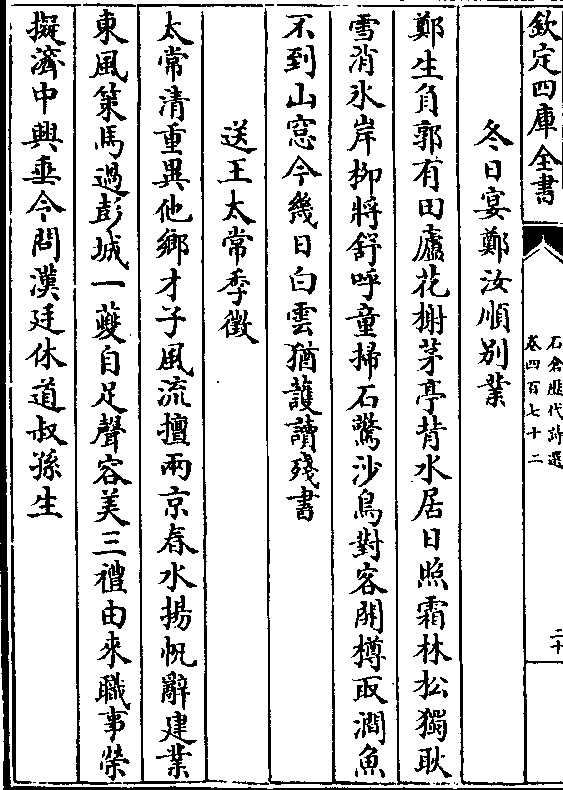 欽定四庫全書
石倉歷代詩選
卷四百七十二
二十
冬日宴鄭汝順別業
鄭生負郭有田廬花榭茅亭背水居日照霜林松獨耿
雪消氷岸栁將舒呼童掃石驚沙鳥對客開樽取澗魚
不到山窓今幾日白雲猶護讀殘書
送王太常季徵
太常清重異他鄉才子風流擅兩京春水揚帆辭建業
東風策馬過彭城一䕫自足聲容美三禮由來職事榮
擬濟中興垂令問漢廷休道叔孫生